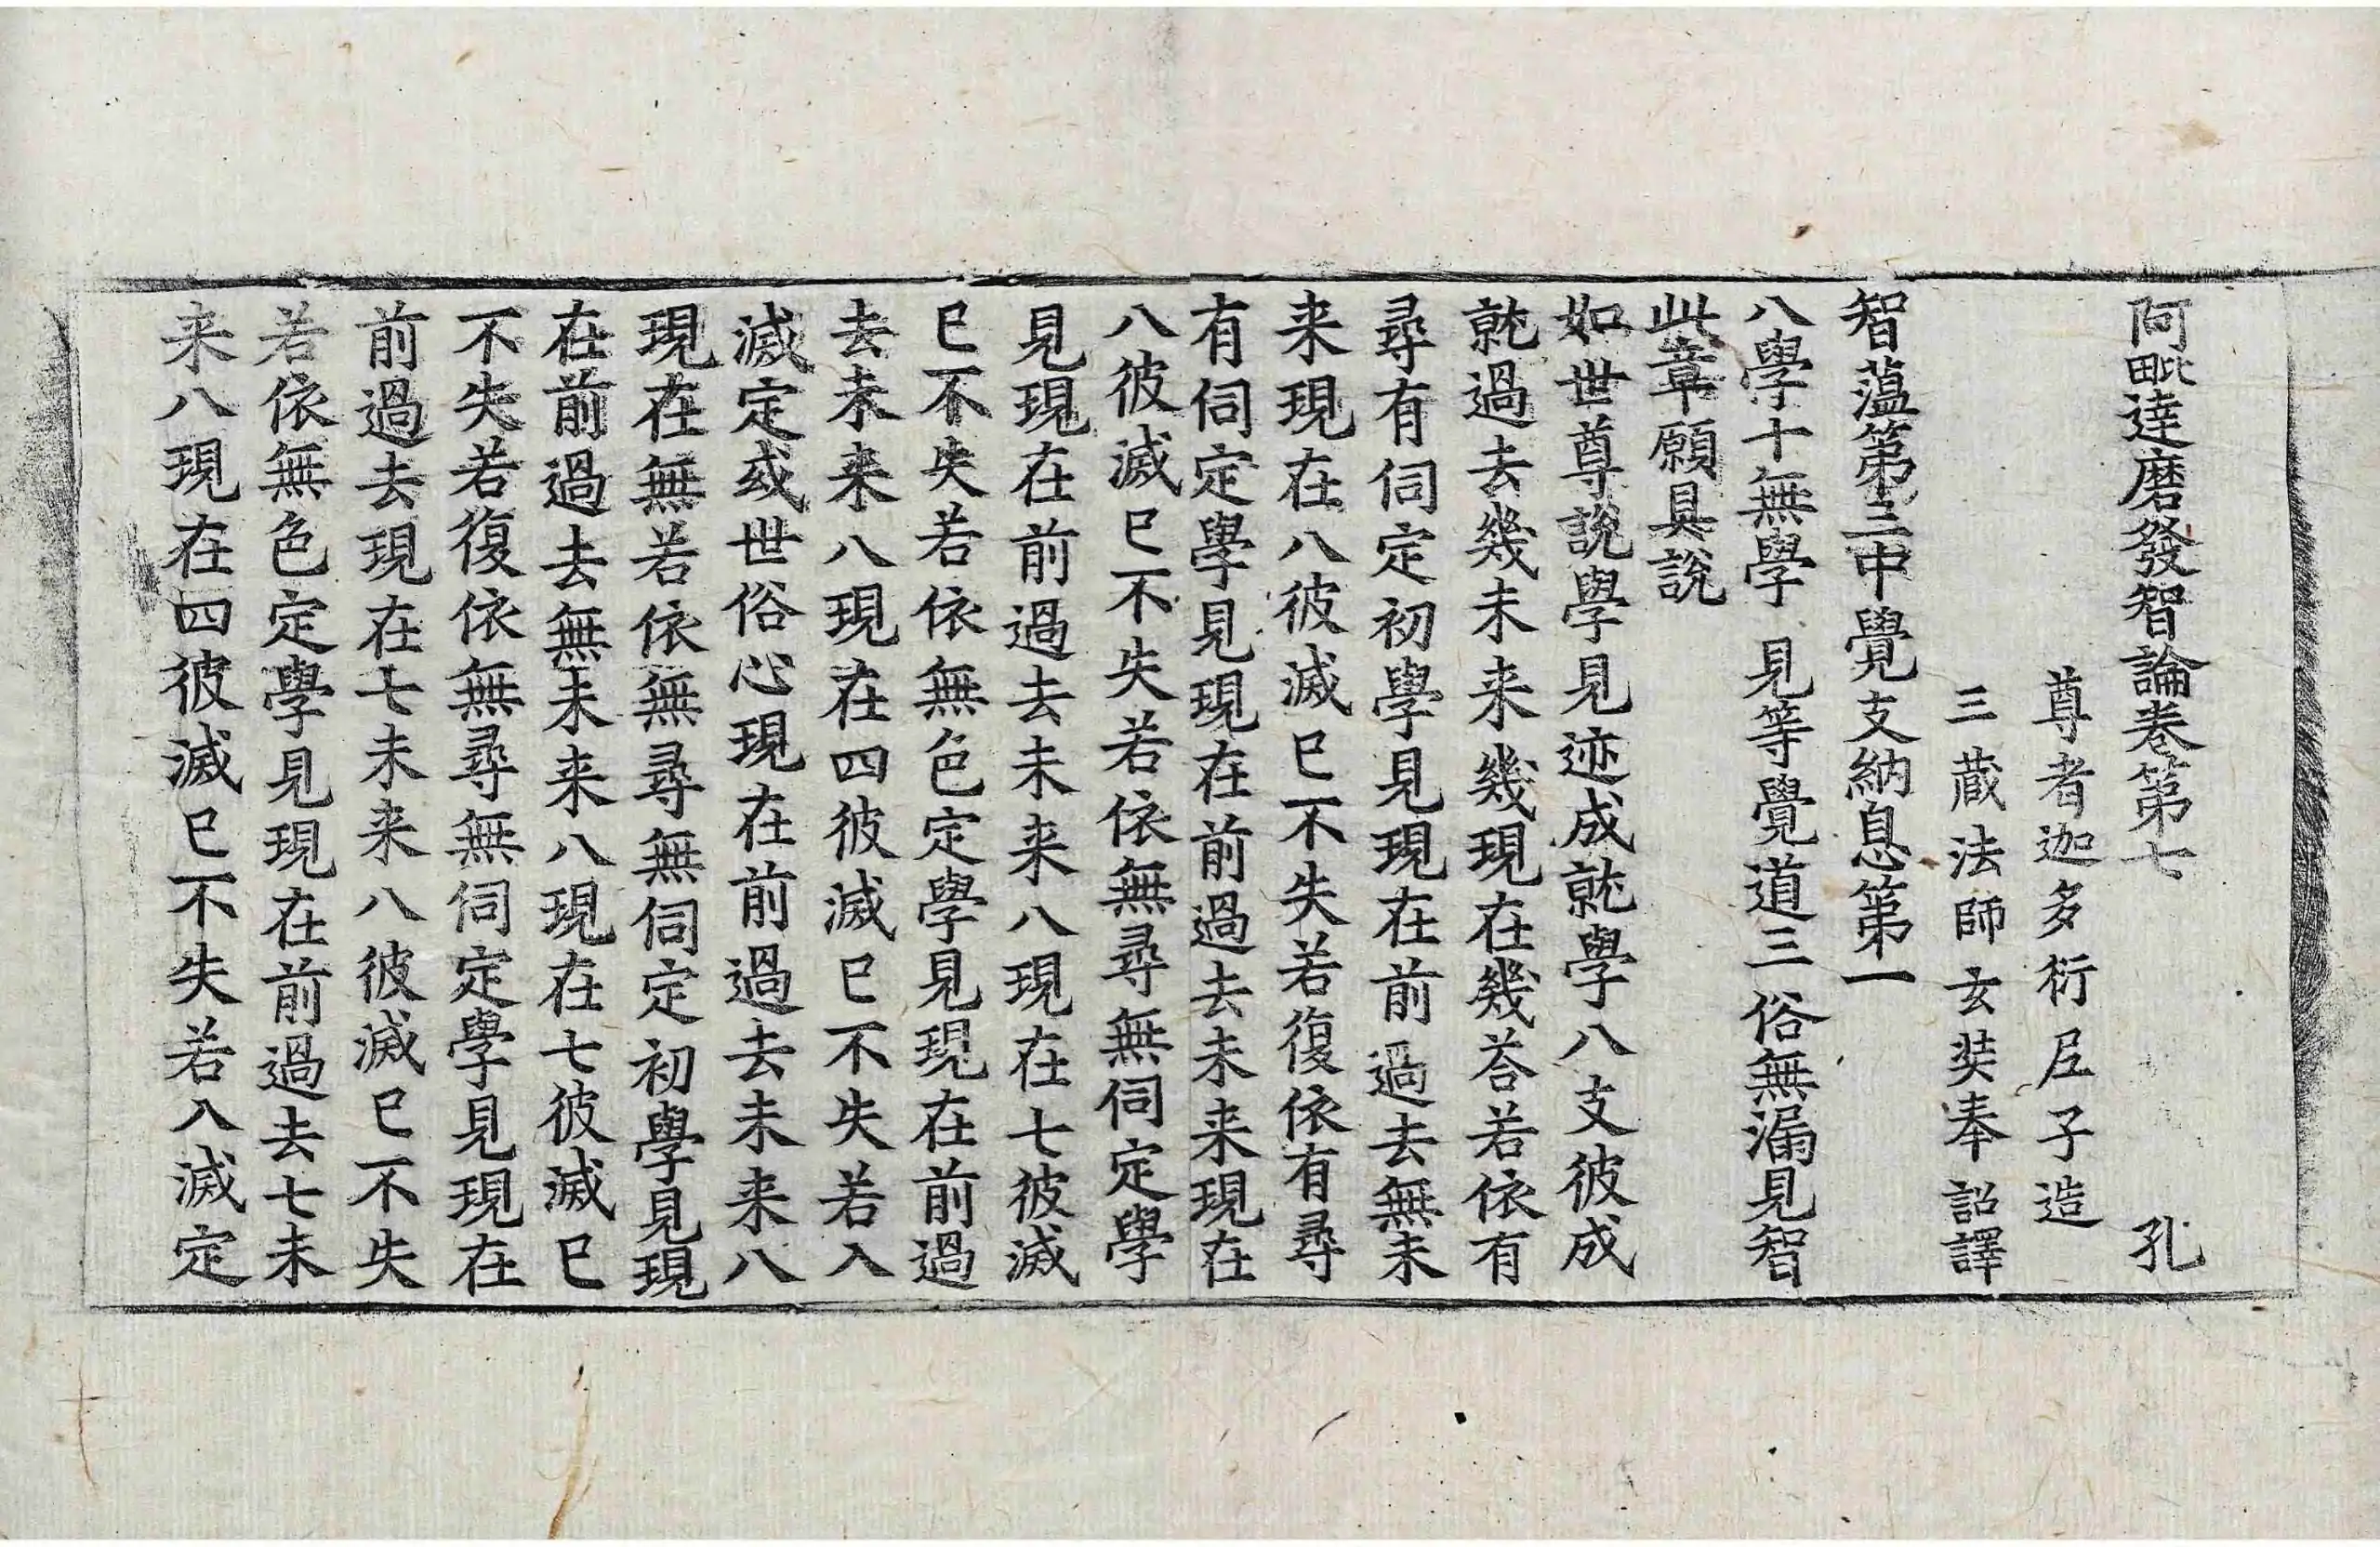 阿毗達磨發智論卷第七 孔
尊者迦多衍尼子造
三藏法師玄奘奉 詔譯
智蕰第三中覺支納息第一
八學十無學 見等覺道三 俗無漏見智
此章願具說
如世尊說學見迹成就學八支彼成
就過去幾未来幾現在幾荅若依有
尋有伺定初學見現在前過去無未
来現在八彼滅已不失若復依有尋
有伺定學見現在前過去未来現在
八彼滅已不失若依無尋無伺定學
見現在前過去未来八現在七彼滅
已不失若依無色定學見現在前過
去未来八現在四彼滅已不失若入
滅定或世俗心現在前過去未来八
現在無若依無尋無伺定初學見現
在前過去無未来八現在七彼滅已
不失若復依無尋無伺定學見現在
前過去現在七未来八彼滅已不失
若依無色定學見現在前過去七未
来八現在四彼滅已不失若入滅定